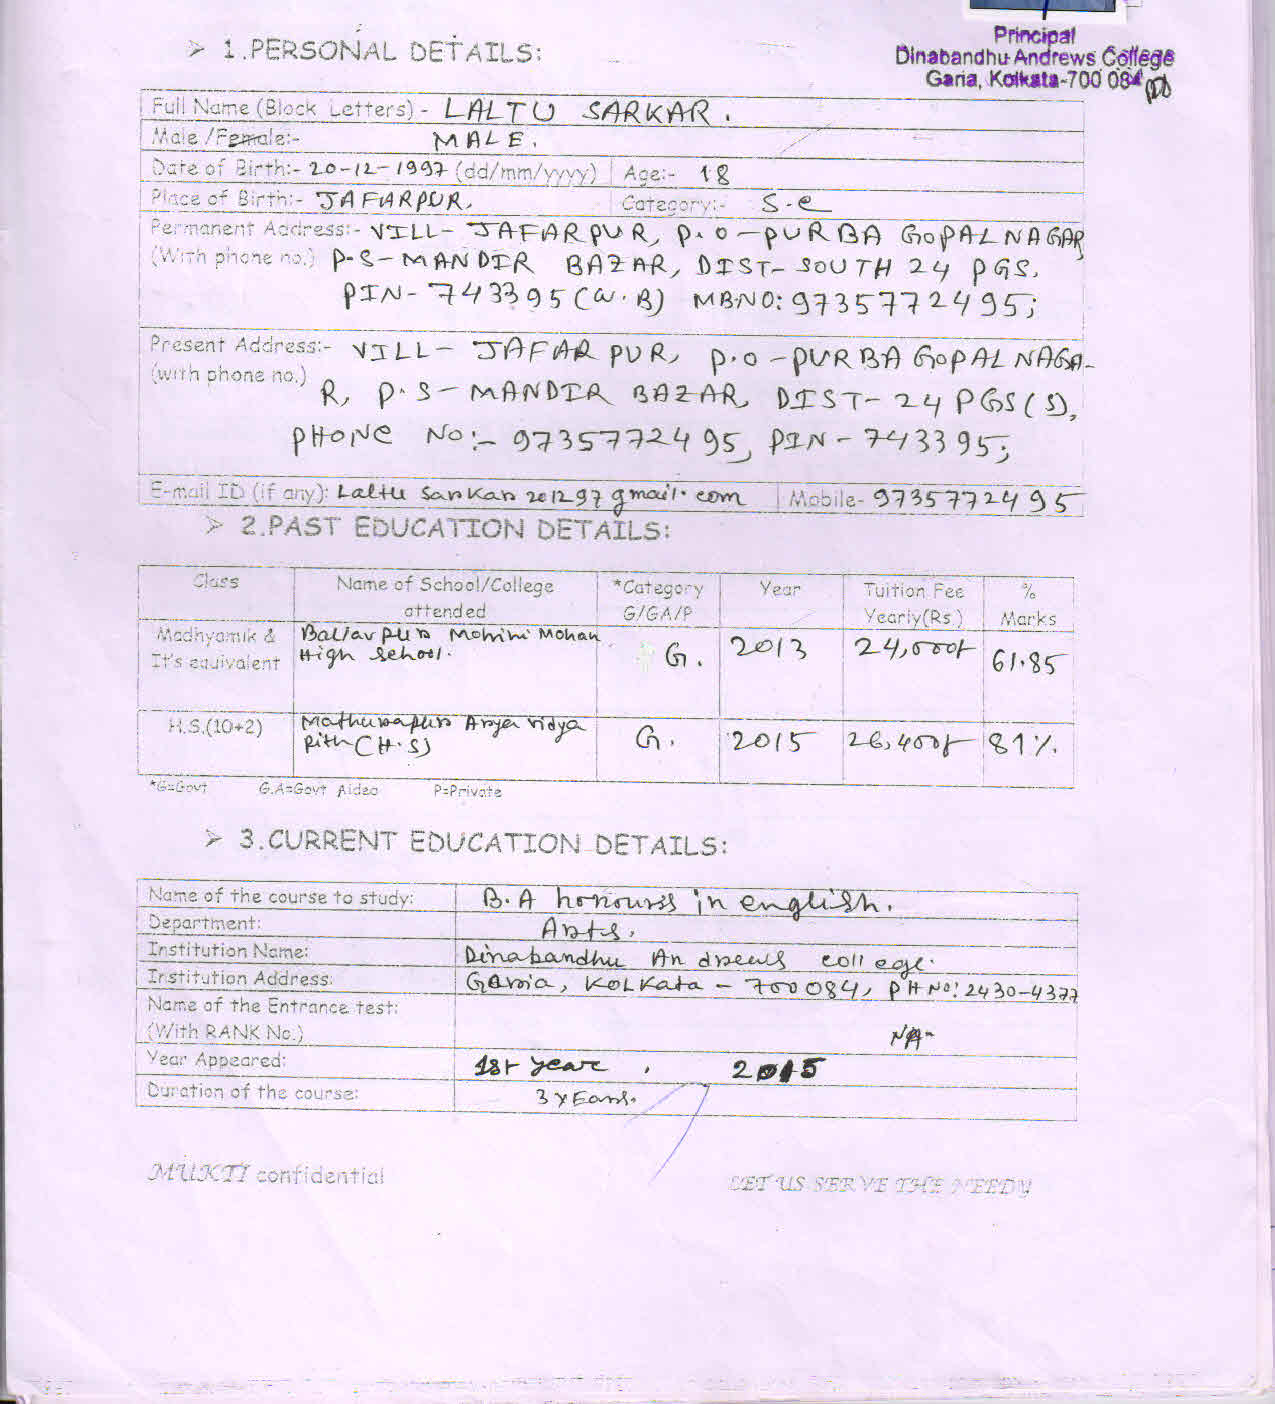 Principal
Dinabandhu Andrews College
Garia, Kolkata-700 084
➢ 1.PERSONAL DETAILS:
Full Name (Block Letters) - LALTU SARKAR.
Male /Female:- MALE.
Date of Birth:- 20-12-1997 (dd/mm/yyyy) Age:- 18
Place of Birth:- JAFARPUR. Category:- S.C
Permanent Address:- VILL- JAFARPUR, P.O-PURBA GOPALNAGAR
(With phone no.) P-S-MANDIR BAZAR, DIST-SOUTH 24 PGS.
PIN-743395(W.B) MB.NO: 9735772495;
Present Address:- VILL- JAFARPUR, P.O-PURBA GOPALNAGA-
(with phone no.) R, P.S-MANDIR BAZAR, DIST-24 PGS(S),
PHONE NO:- 9735772495, PIN-743395;
E-mail ID (if any): Laltu Sarkar 201297 gmail.com Mobile- 9735772495
➢ 2.PAST EDUCATION DETAILS:
Class Name of School/College *Category Year Tuition Fee %
attended G/GA/P Yearly(Rs.) Marks
Madhyamik & Mohini Mohan
It's equivalent High School. G. 2013 24,000/- 61.85
H.S.(10+2) Mathurapur Arya vidya
pith (H.S) G. 2015 26,400/- 81%.
*G=Govt G.A=Govt Aided P=Private
➢ 3.CURRENT EDUCATION DETAILS:
Name of the course to study: B.A honours in english.
Department: Arts.
Institution Name: Dinabandhu Andrews college.
Institution Address: Garia, KOLKata - 700084, PH NO: 2430-4377
Name of the Entrance test:
(With RANK No.) NA-
Year Appeared: 1st year, 2015
Duration of the course: 3 yEars.
MUKTI confidential LET US SERVE THE NEEDY